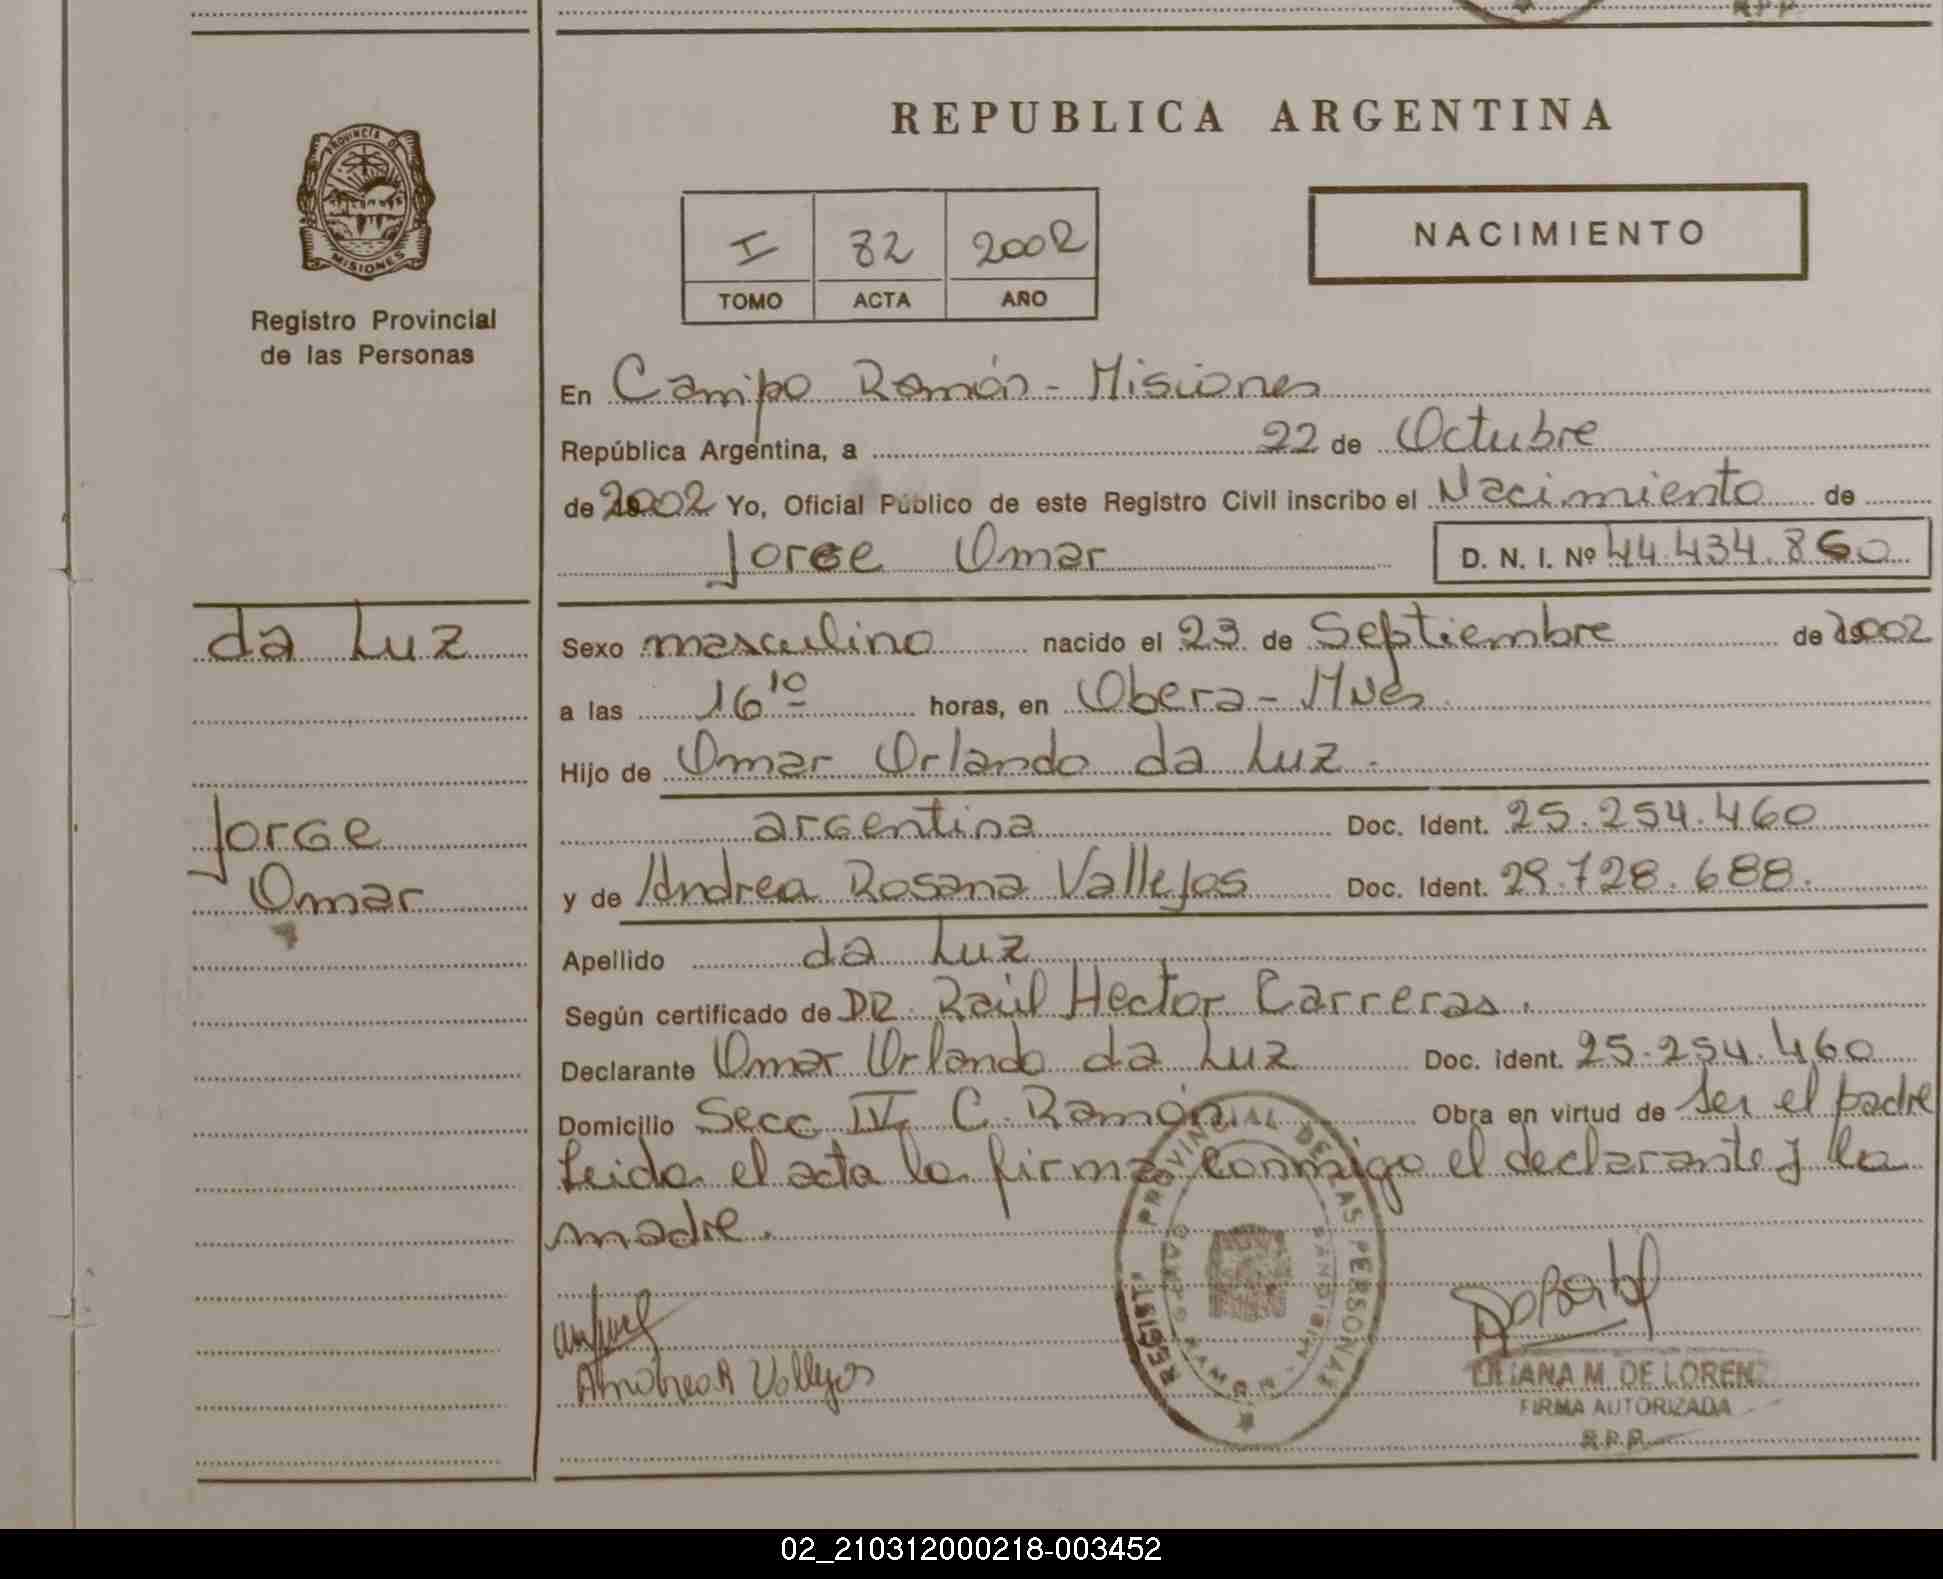 PROVINCIA DE
MISIONES
Registro Provincial
de las Personas
REPUBLICA ARGENTINA
I 82 2002
TOMO ACTA AÑO
NACIMIENTO
En Campo Ramón - Misiones
República Argentina, a 22 de Octubre
de 2002 Yo, Oficial Público de este Registro Civil inscribo el Nacimiento de
Jorge Omar D. N. I. Nº 44.434.860
da Luz
Jorge
Omar
Sexo masculino nacido el 23 de Septiembre de 2002
a las 16 10 horas, en Obera - Mnes
Hijo de Omar Orlando da Luz.
argentina Doc. Ident. 25.254.460
y de Andrea Rosana Vallejos Doc. Ident. 29.728.688.
Apellido da Luz
Según certificado de DR. Raúl Hector Carreras.
Declarante Omar Orlando da Luz Doc. ident. 25.254.460
Domicilio Secc IV C. Ramón Obra en virtud de ser el padre
Leida el acta la firma conmigo el declarante y la
madre.
REGIST. PROVINCIAL DE LAS PERSONAS
Andrea R Vallejos
LILIANA M. DE LOREN
FIRMA AUTORIZADA
R.P.P.
02_210312000218-003452